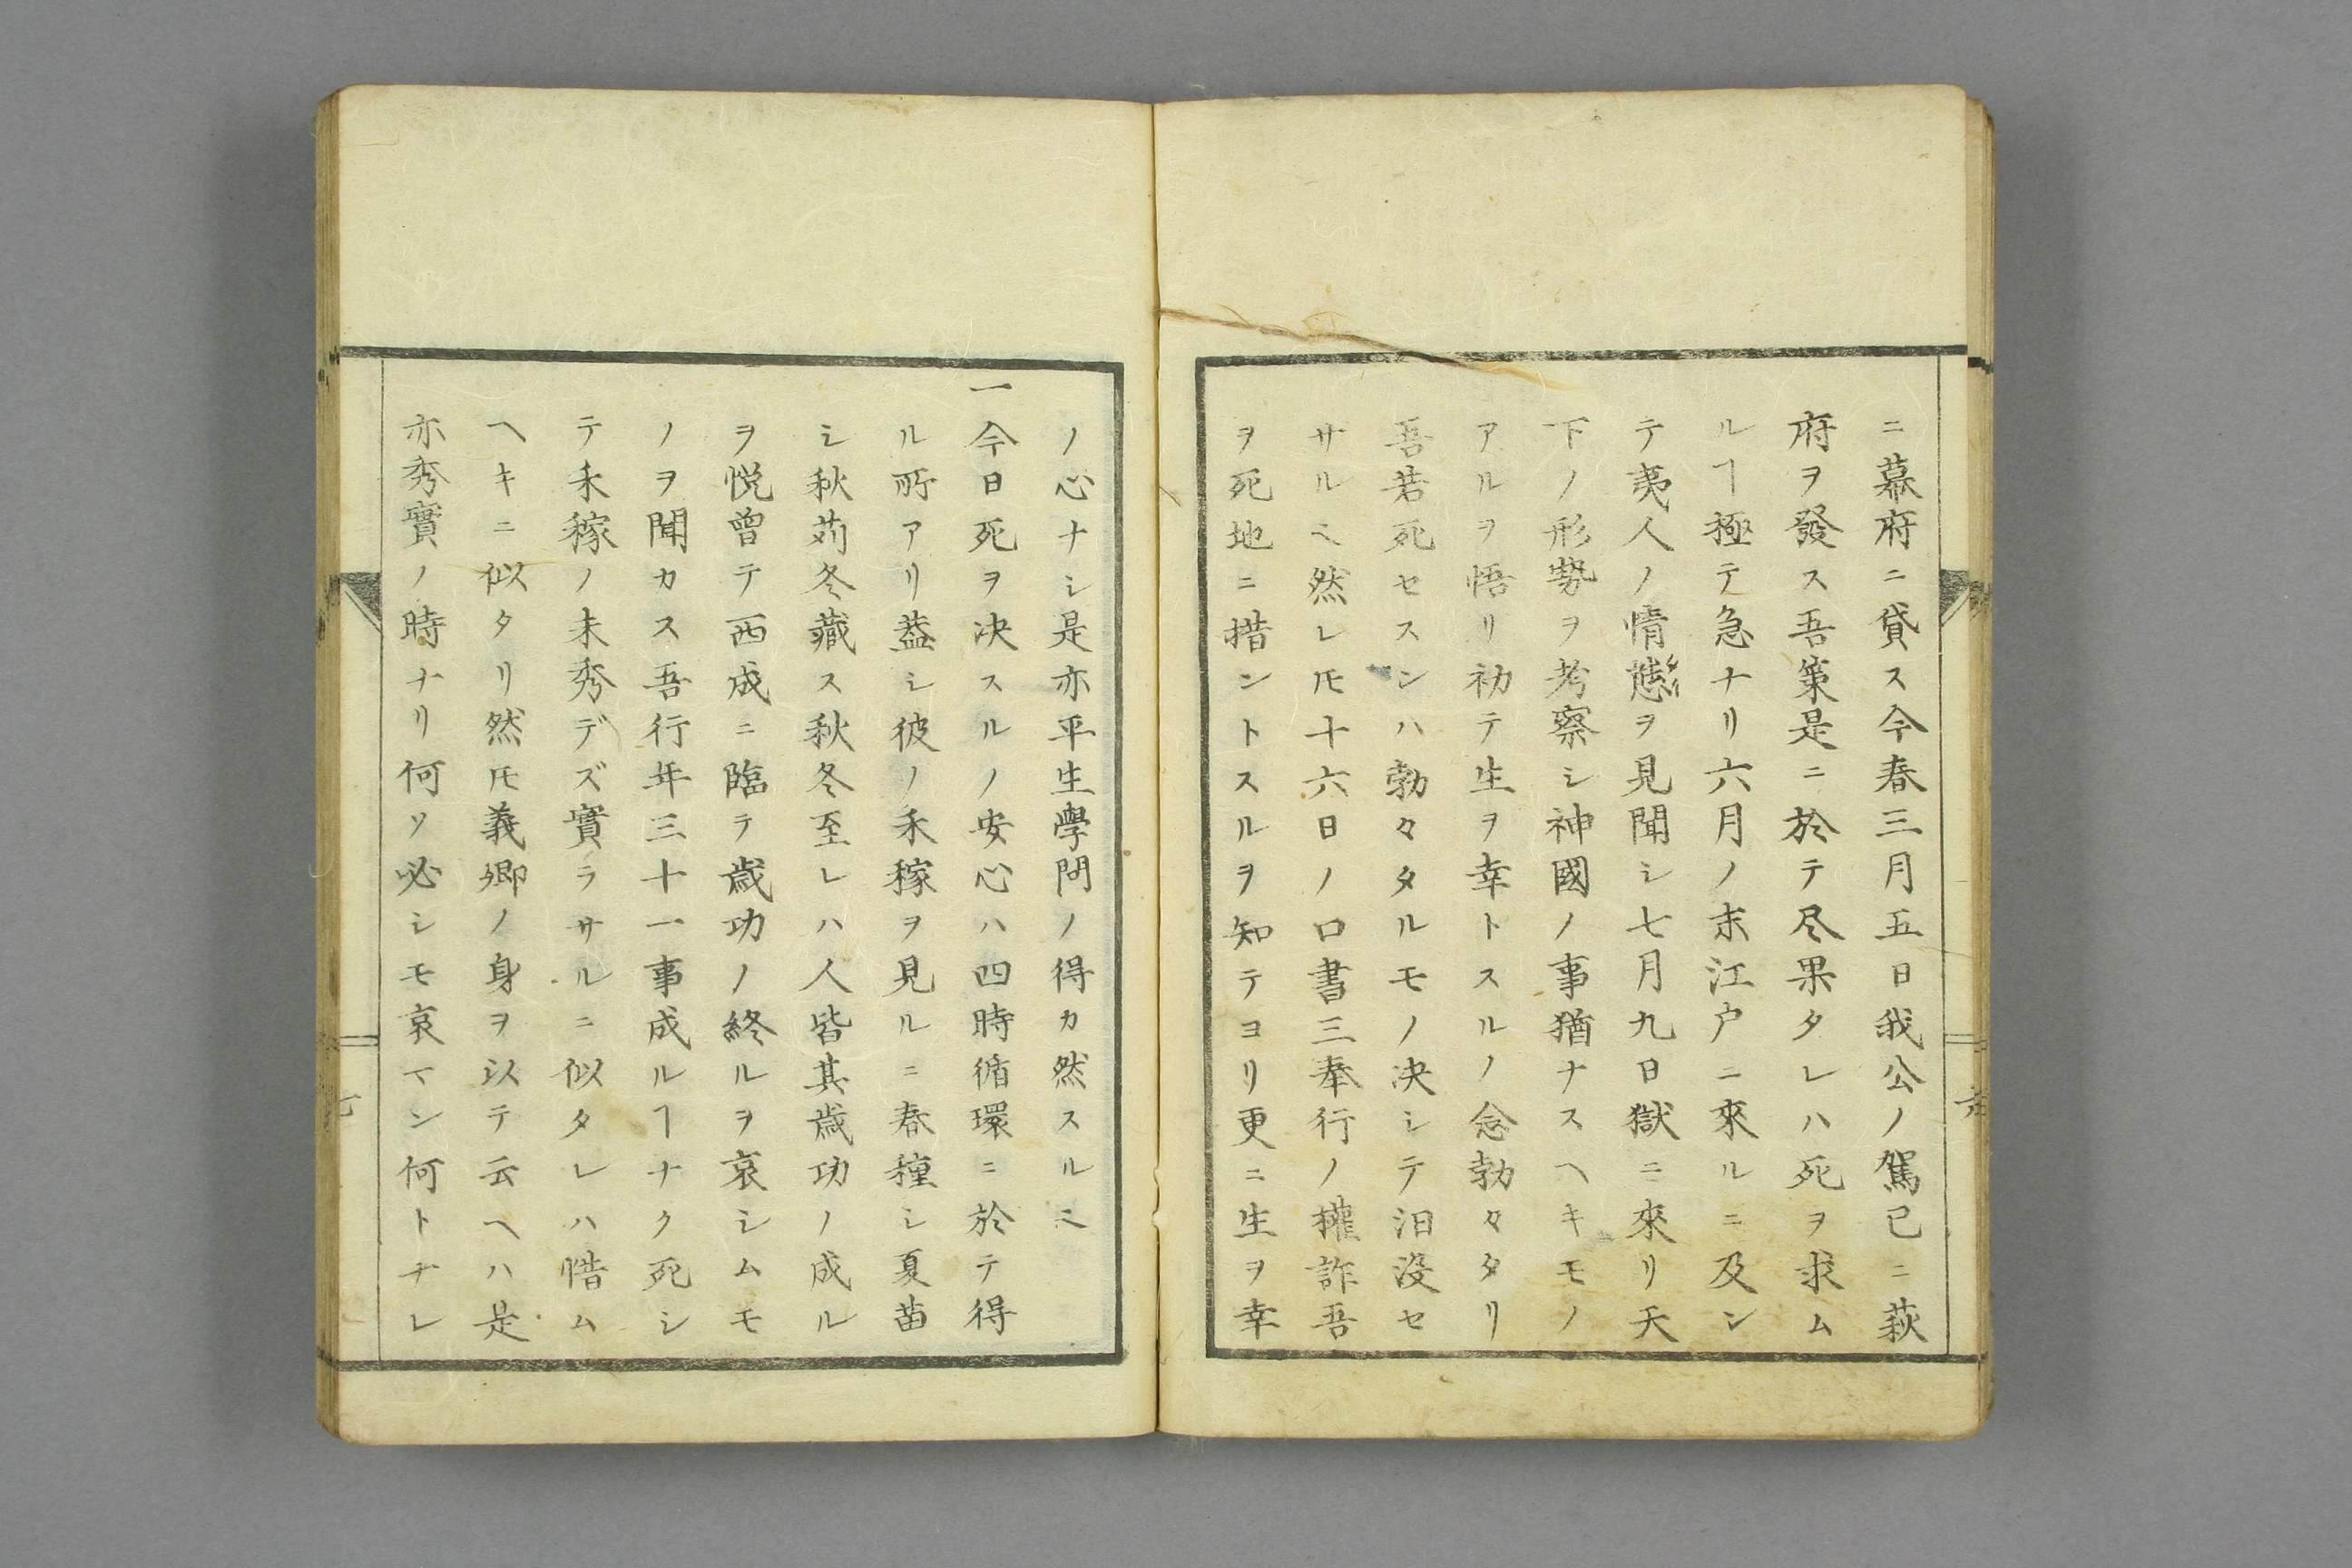 ニ幕府ニ貸ス今春三月五日我公ノ駕已ニ萩
府ヲ發ス吾策是ニ於テ尽果タレハ死ヲ求ム
ルヿ極テ急ナリ六月ノ末江戸ニ來ルニ及ン
テ夷人ノ情態ヲ見聞シ七月九日獄ニ來リ天
下ノ形勢ヲ考察シ神國ノ事猶ナスヘキモノ
アルヲ悟リ初テ生ヲ幸トスルノ念勃々タリ
吾若死セスンハ勃々タルモノ决シテ汨没セ
サルニ然レ𪜈十六日ノ口書三奉行ノ權詐吾
ヲ死地ニ措ントスルヲ知テヨリ更ニ生ヲ幸
六
ノ心ナシ是亦平生學問ノ得カ然スルニ
一今日死ヲ决スルノ安心ハ四時循環ニ於テ得
ル所アリ蓋シ彼ノ禾稼ヲ見ルニ春種シ夏苗
シ秋苅冬藏ス秋冬至レハ人皆其歳功ノ成ル
ヲ悦曽テ西成ニ臨テ歳功ノ終ルヲ哀シムモ
ノヲ聞カス吾行年三十一事成ルヿナク死シ
テ禾稼ノ未秀デズ實ラサルニ似タレハ惜ム
ヘキニ似タリ然𪜈義卿ノ身ヲ以テ云ヘハ是
亦秀實ノ時ナリ何ソ必シモ哀マン何トナレ
七